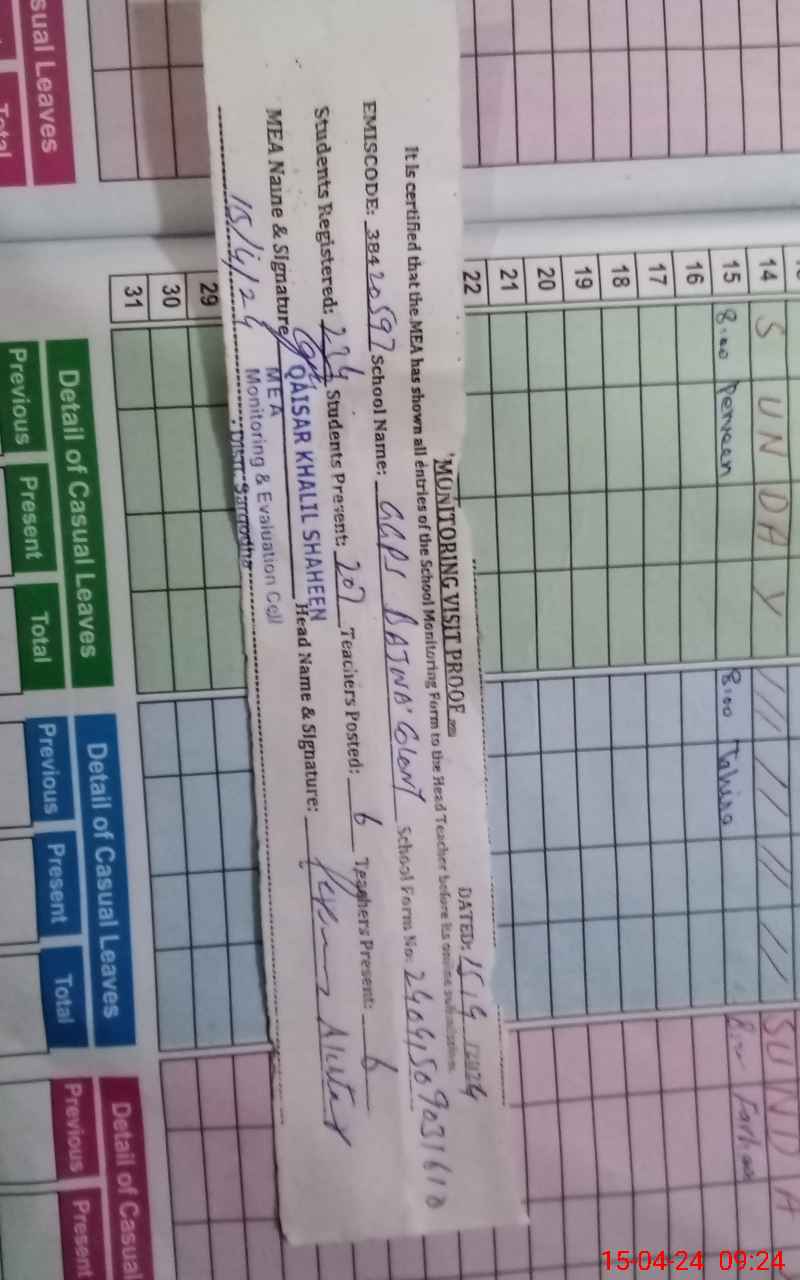 'MONITORING VISIT PROOF
DATED: 15/4 /2024
It is certified that the MEA has shown all entries of the School Monitoring Form to the Head Teacher before its online submission.
EMISCODE: 38420597 School Name: GGPS BAJWA Colony School Form No:
Students Registered: 224 Students Present: 207 Teachers Posted: 6 Teachers Present: 6
MEA Name & Signature Head Name & Signature: Akhtar
QAISAR KHALIL SHAHEEN
MEA
Monitoring & Evaluation Cell
Distt: Sargodha
15/4/24
14 SUNDAY SUNDA
15 8:00 Perveen 8:00 Tahira Farhas
16
17
18
19
20
21
22
29
30
31
sual Leaves
Total
Detail of Casual Leaves
Previous Present Total
Detail of Casual Leaves
Previous Present Total
Detail of Casual
Previous Present
15-04-24 09:24